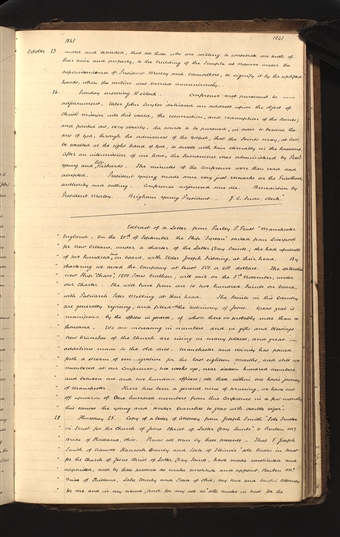 1841 1841
October 23 moved and seconded, that all those who are willing to consecrate one tenth of
their time and property, to the building of the Temple at Nauvoo under the
superintendance of President Wesley and councellors, to signify it by the uplifted
hands, when the motion was carried unanimously.
24 Sunday morning 10 o'clock. Conference met pursuant to
adjournment. Elder John Taylor delivered an address upon the object of
Christ's mission into this world, the resurrection, and redemption of the Saints;
and pointed out, very clearly, the course to be pursued, in order to become the
sons of God, through the ordinances of the Gospel, that the Saints may, at last,
be exalted at the right hand of God, to dwell with him eternally in the heavens.
After an intermission of one hour, the Sacrament was administered by Prest
Young and Richards. The minutes of the conference were then read and
accepted. President Young made some very just remarks on the Priesthood,
authority and calling. Conference adjourned sine die. Benediction by
President Wesley. Brigham Young President J. C. Snow, Clerk
Extract of a Letter from Parley P. Pratt "Manchester
England. On the 20th of September the Ship "Tyrean" sailed from Liverpool
for New Orleans, under a charter of the Latter Day Saints; she had upwards
of two hundred on board, with Elder Joseph Fielding, at their head. By
chartering we saved the Company at least 500 or 600 dollars. The splendid
new Ship "Chaos", 1200 Tons burthen, will sail on the 5th November, under
our Charter. She will have from one to two hundred Saints on board,
with Patriarch Peter Melling at their head. The Saints in this Country
are generally rejoicing, and filled with the testimony of Jesus. Great zeal is
manifested by the officers in general, of whom there is probably more than a
thousand. We are increasing in numbers and in gifts and blessings
New branches of the Church are rising in many places, and great
additions made to the old ones. Manchester and vicinity has poured
forth a stream of emigration for the last eighteen months, and still we
numbered at our Conference, two weeks ago, near sixteen hundred members,
and between one and two hundred officers; all these within one hours journey
of Manchester. There has been a general time of pruning, we have cut
off upwards of one hundred members from this Conference in a few months;
this causes the young and tender branches to grow with double vigor."
28 Thursday 28. Copy of a Letter of Attorney from Joseph Smith "Sole Trustee
in Trust for the Church of Jesus Christ of Latter Day Saints" to Reuben McBride
of Kirtland, Ohio. Know all men by these presents. That I Joseph
Smith of Nauvoo Hancock County and State of Illinois "sole trustee in trust
for the Church of Jesus Christ of Latter Day Saints", have made constituted and
appointed, and by these presents do make constitute and appoint Reuben Mc-
Bride of Kirtland, Lake County and State of Ohio, my true and lawful attorney
for me and in my name, and for my use as "sole trustee in trust for the